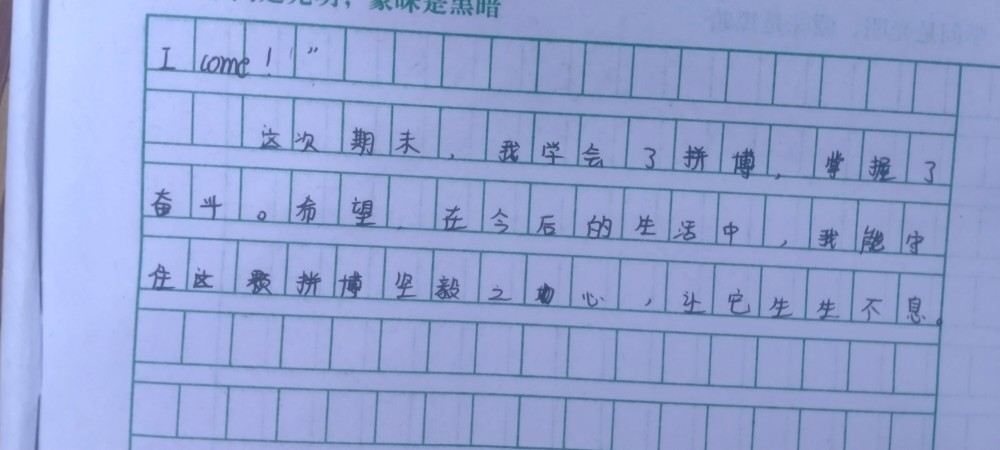 光明，蒙昧是黑暗
I come！”
这次期末，我学会了拼搏，掌握了
奋斗。希望，在今后的生活中，我能守
住这颗拼搏坚毅之心，让它生生不息。